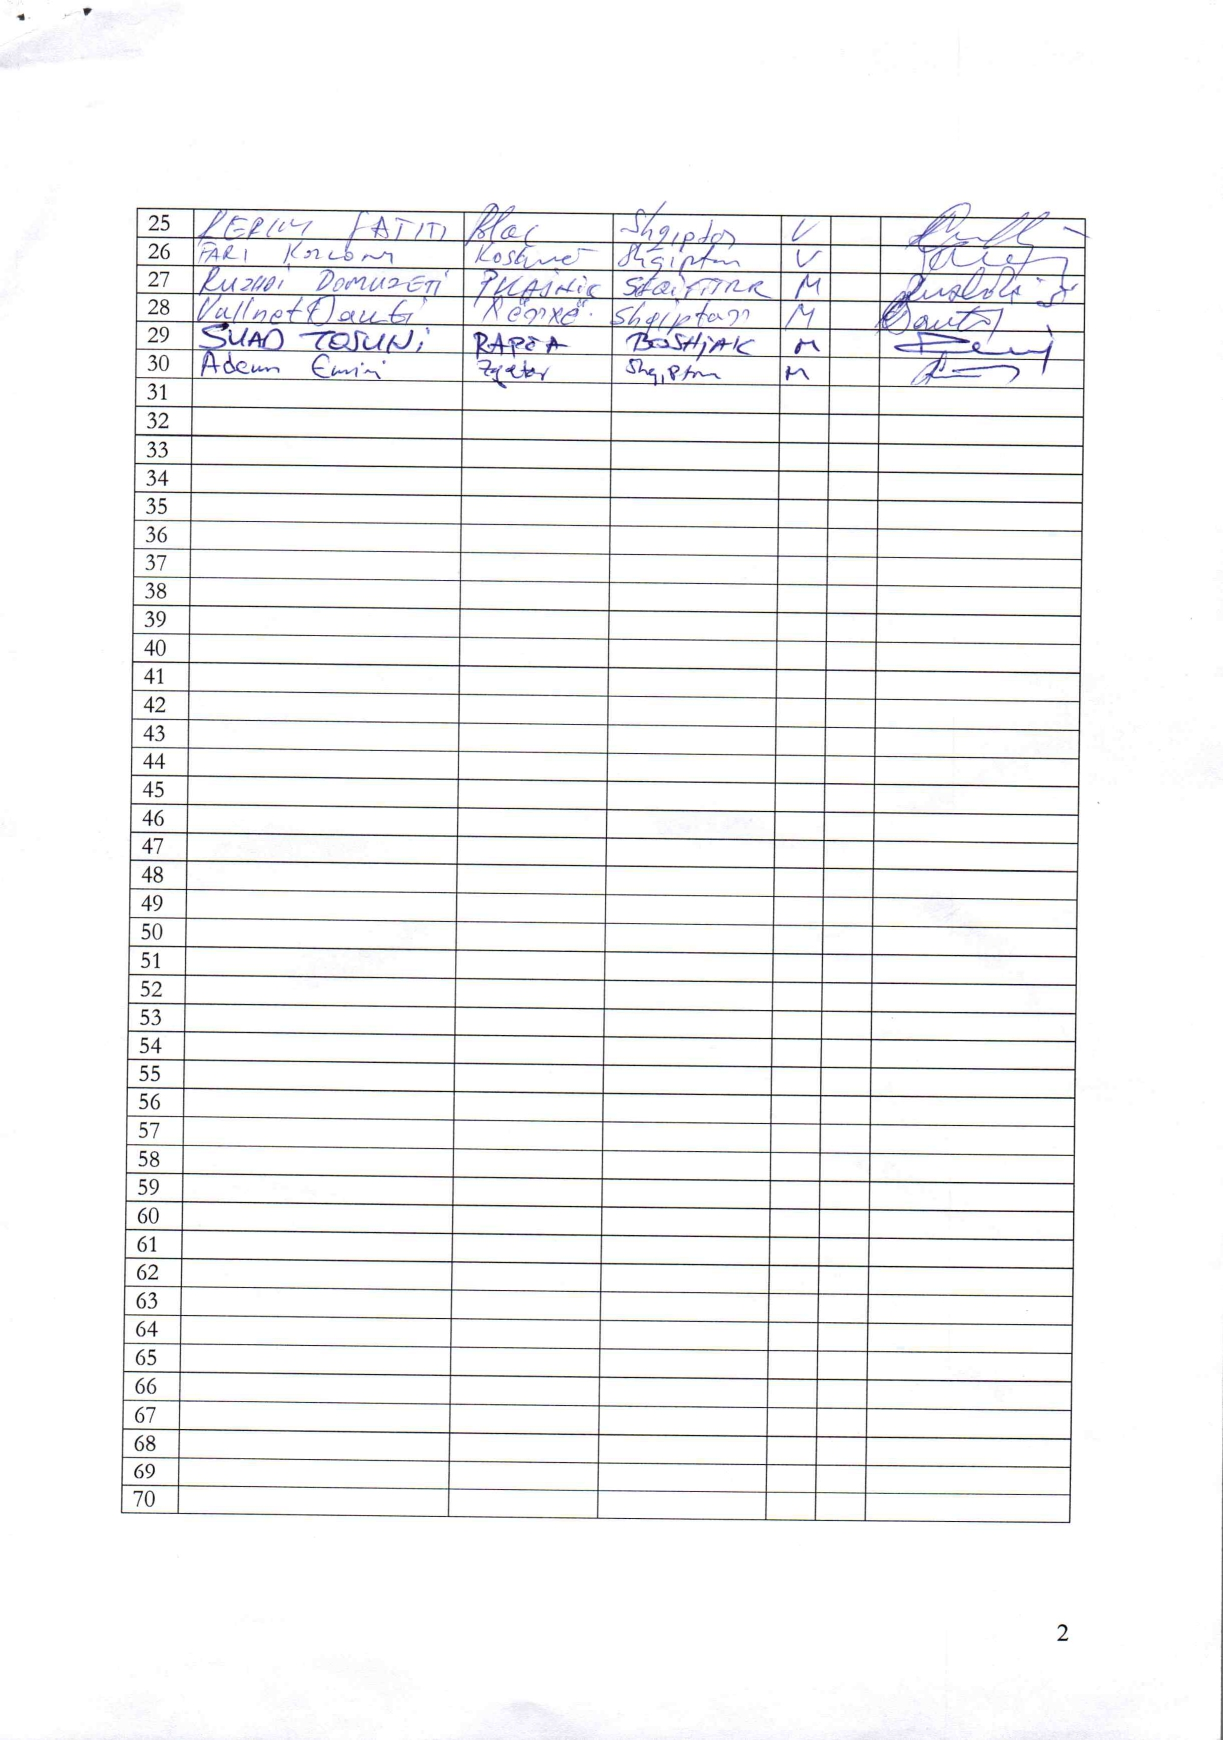 25 FATITI Blac Shqiptar V
26 FARI Koshinë Shqiptar V
27 RUZHDI DOMUZETI PLLAJNIK SHQIPTAR M
28 Vullnet Dauti Rënxë Shqiptarr M
29 SUAD TOSUNi RAPÇA BOSHJAK M
30 Adem Emini Zgatar Shqiptar M
31
32
33
34
35
36
37
38
39
40
41
42
43
44
45
46
47
48
49
50
51
52
53
54
55
56
57
58
59
60
61
62
63
64
65
66
67
68
69
70
2